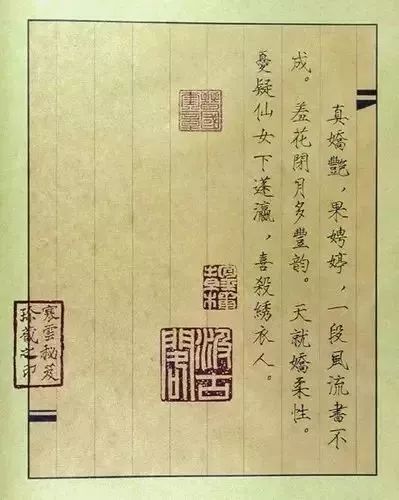 真嬌艷，果娉婷，一段風流畫不
成。羞花閉月多豐韵。天就嬌柔性。
憂疑仙女下蓬瀛，喜殺綉衣人。
寒雲秘笈
珍藏之印